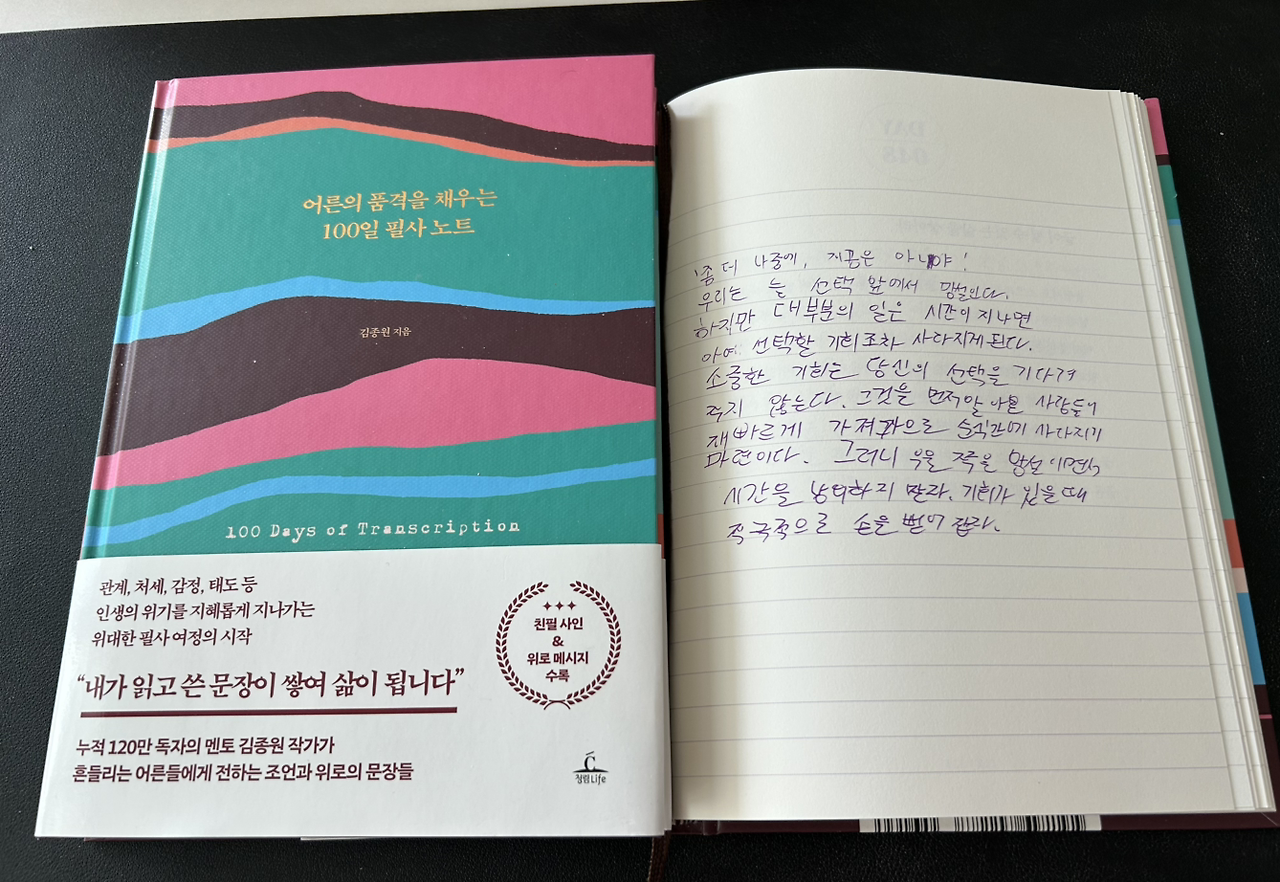 어른의 품격을 채우는
100일 필사 노트
김종원 지음
100 Days of Transcription
관계, 처세, 감정, 태도 등
인생의 위기를 지혜롭게 지나가는
위대한 필사 여정의 시작
“내가 읽고 쓴 문장이 쌓여 삶이 됩니다”
누적 120만 독자의 멘토 김종원 작가가
흔들리는 어른들에게 전하는 조언과 위로의 문장들
친필 사인
&
위로 메시지
수록
청림Life
DAY
048
'좀 더 나중에, 지금은 아니야!
우리는 늘 선택 앞에서 망설인다.
하지만 대부분의 일은 시간이 지나면
아예 선택할 기회조차 사라지게 된다.
소중한 기회는 당신의 선택을 기다려
주지 않는다. 그것을 먼저 알아본 사람들이
재빠르게 가져감으로 순식간에 사라지기
마련이다. 그러니 우물쭈물 망설이면서
시간을 낭비하지 말라. 기회가 있을 때
적극적으로 손을 뻗어 잡라.